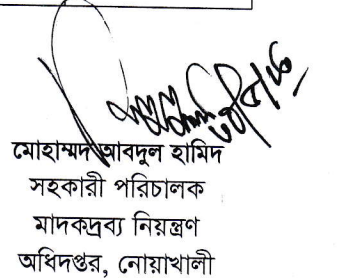 মোহাম্মদ আবদুল হামিদ
সহকারী পরিচালক
মাদকদ্রব্য নিয়ন্ত্রণ
অধিদপ্তর, নোয়াখালী